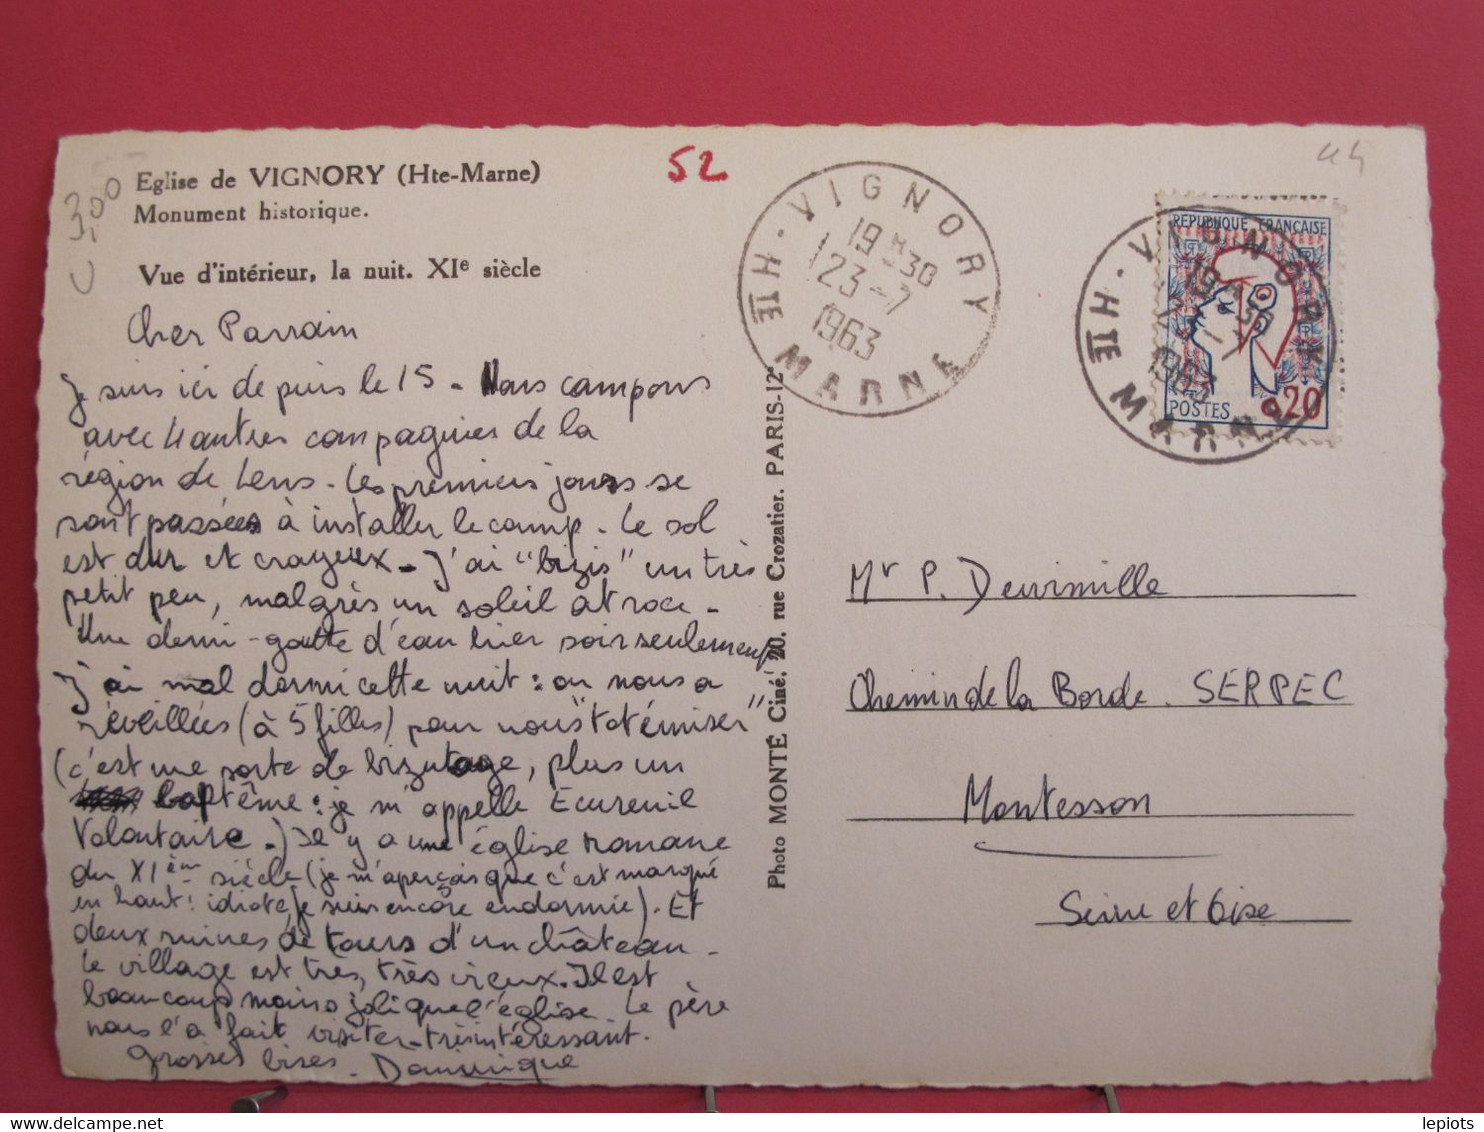 Eglise de VIGNORY (Hte-Marne)
Monument historique.
Vue d'intérieur, la nuit. XIe siècle
3,00
52
Cher Parrain
Je suis ici depuis le 15 - Nous campons
avec 4 autres compagnies de la
région de Lens - Les premiers jours se
sont passées à installer le camp - Le sol
est dur et crayeux - J'ai "bizis" un très
petit peu, malgrès un soleil atroce -
Une demi-goutte d'eau hier soir seulement
J'ai mal dormi cette nuit : on nous a
réveillées (à 5 filles) pour nous "totémiser"
(c'est une sorte de bizutage, plus un
baptême : je m'appelle Ecureuil
Volontaire -) Il y a une église romane
du XIème siècle (je m'aperçois que c'est marqué
en haut ! idiote, je suis encore endormie). Et
deux ruines de tours d'un château -
Le village est très, très vieux. Il est
beaucoup moins joli que l'église. Le père
nous l'a fait visiter - très intéressant.
Grosses bises - Dominique
Photo MONTÉ Ciné, 20, rue Crozatier. PARIS-12e
VIGNORY
19H30
23-7
1963
HTE MARNE
REPUBLIQUE FRANÇAISE
POSTES
0,20
VIGNORY
1963
HTE MARNE
Mr P. Dewimille
Chemin de la Borde. SERPEC
Montesson
Seine et Oise
lepiots